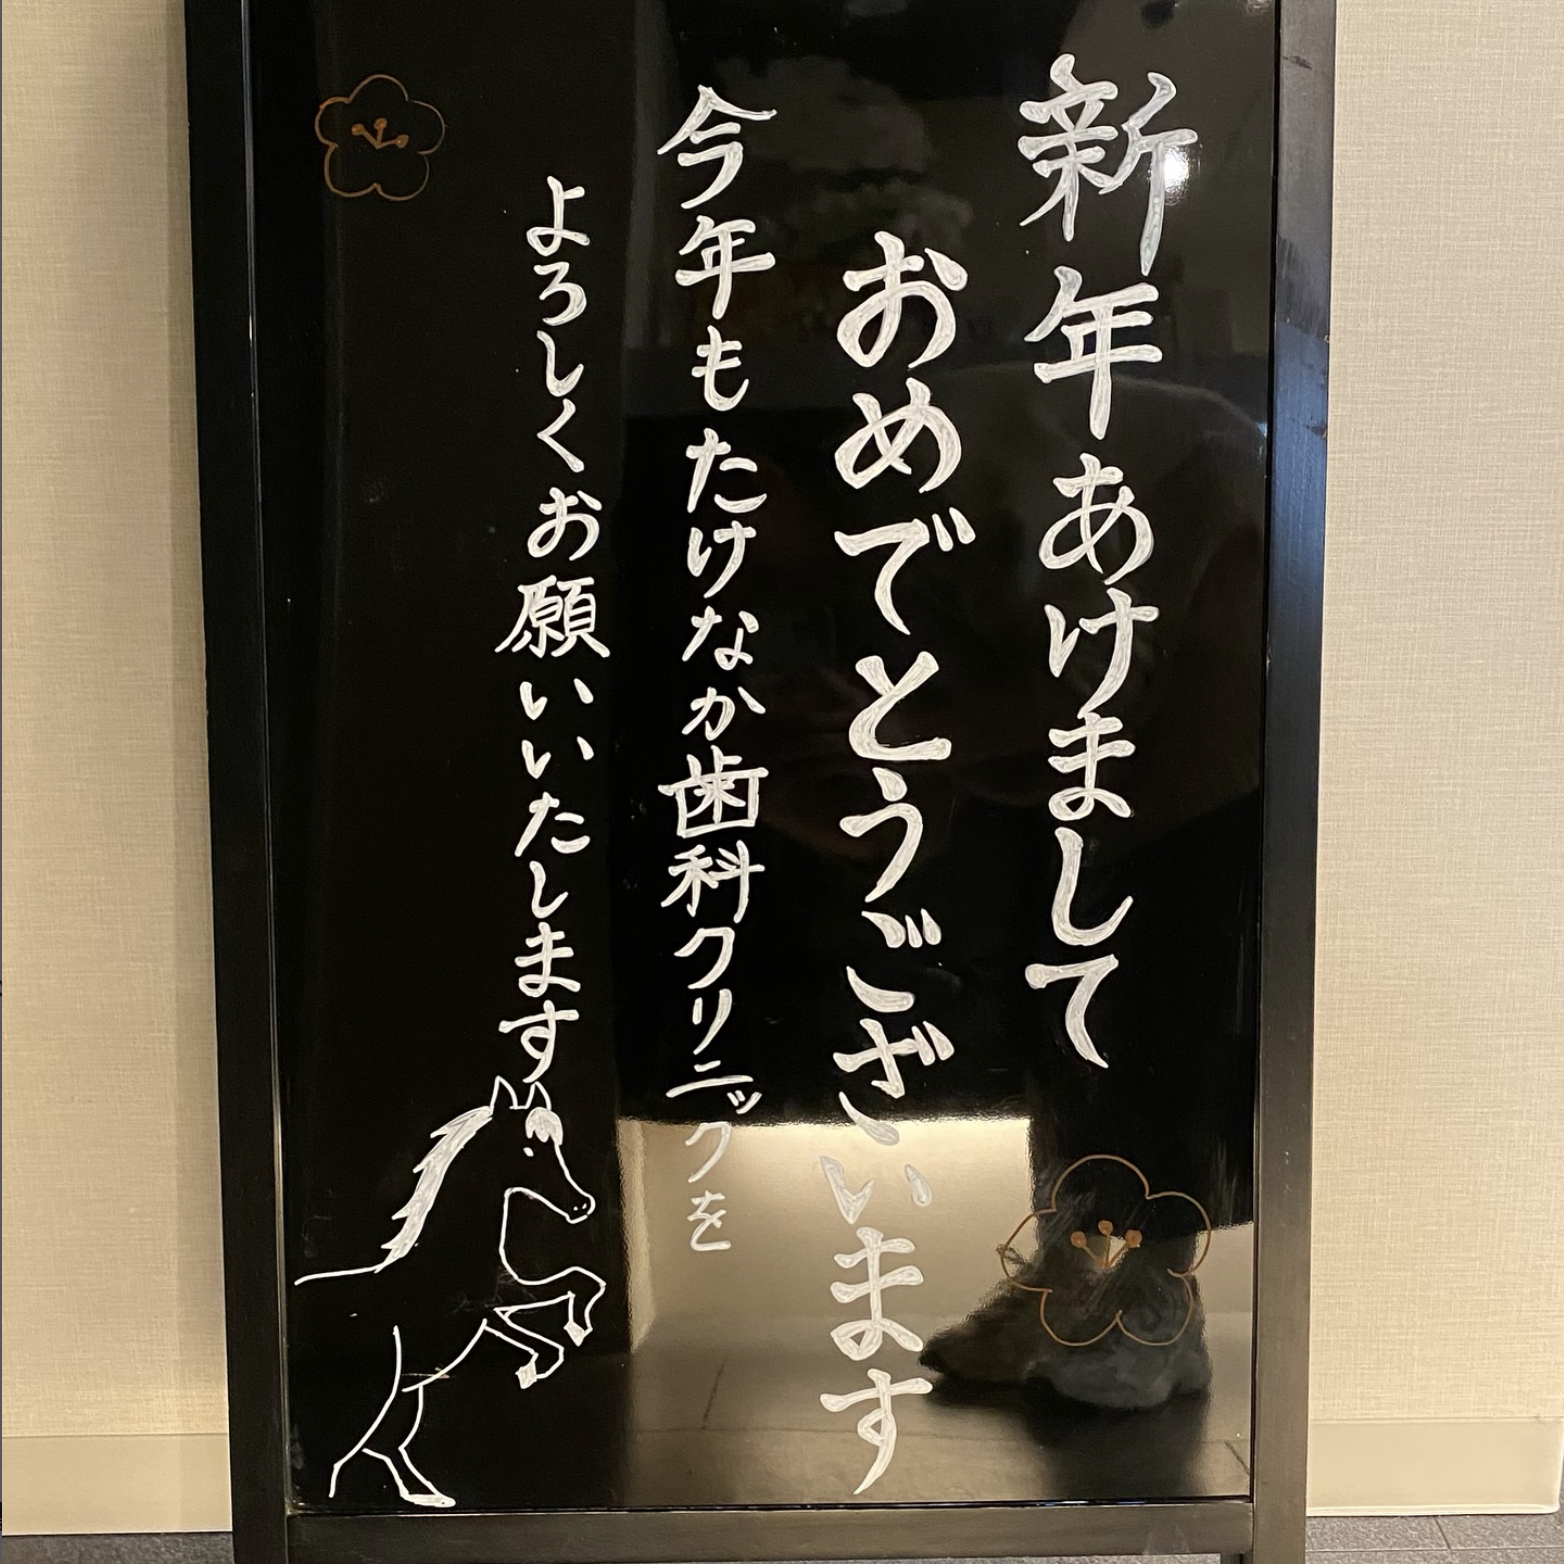 新年あけまして
おめでとうございます
今年もたけなか歯科クリニックを
よろしくお願いいたします